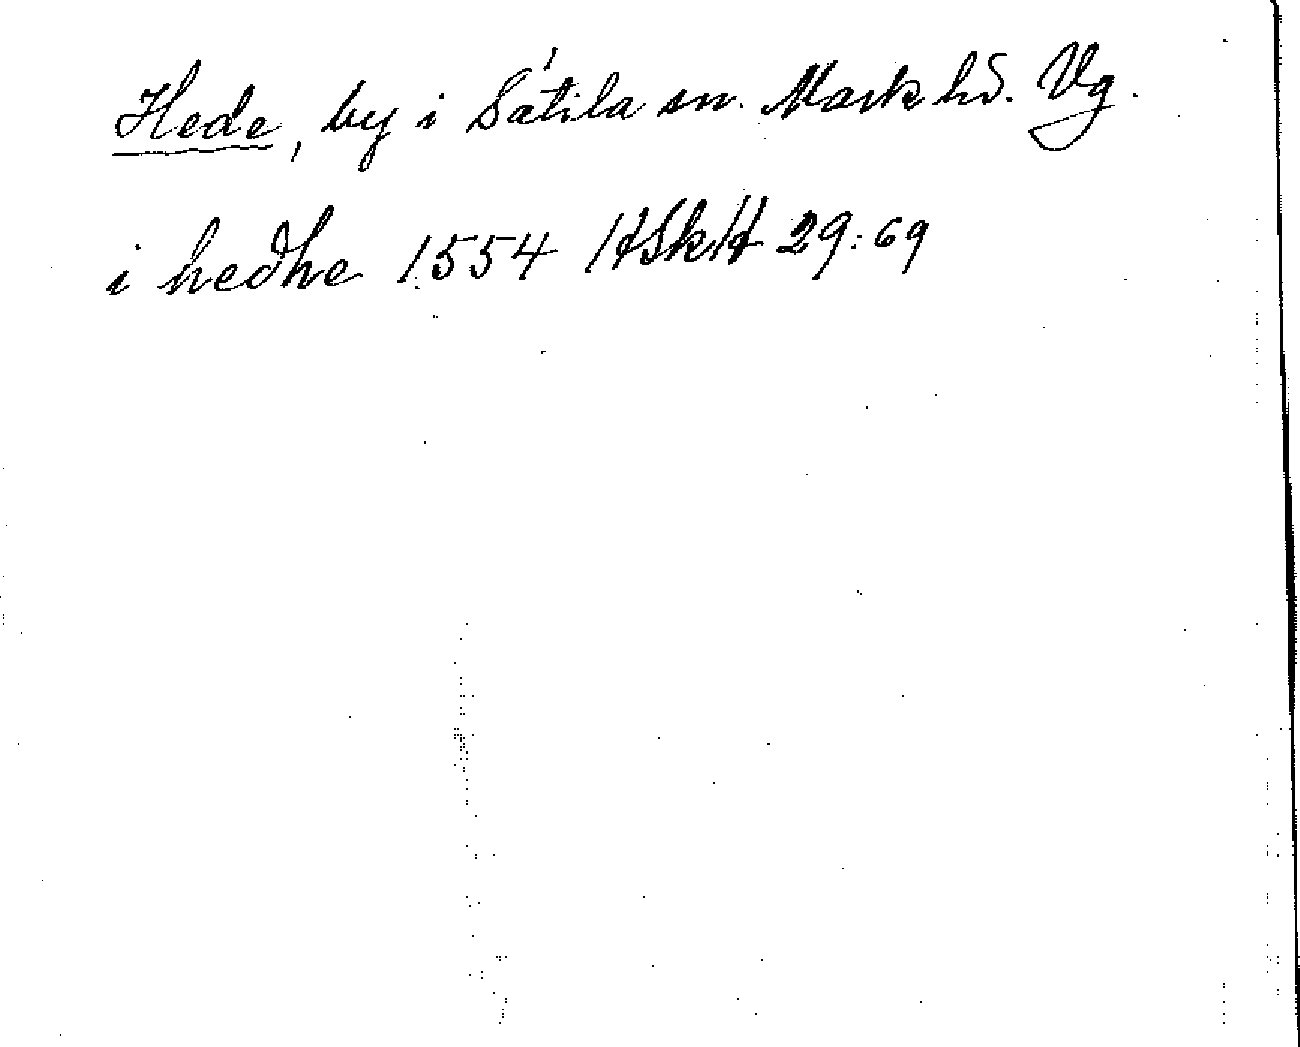 Hede, by i Sätila sn. Mark hd. Vg.
i hedhe 1554 HSkH 29:69